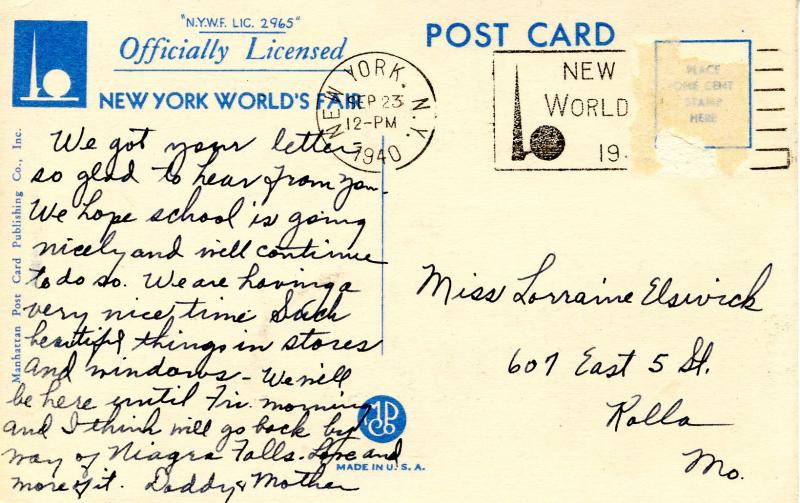 "N.Y.W.F. LIC. 2965"
Officially Licensed
NEW YORK WORLD'S FAIR
POST CARD
NEW YORK, N.Y.
SEP 23
12-PM
1940
NEW
WORLD
19
PLACE
ONE CENT
STAMP
HERE
Manhattan Post Card Publishing Co., Inc.
We got your letter
so glad to hear from you.
We hope school is going
nicely and will continue
to do so. We are having a
very nice time Such
beautiful things in stores
and windows - We will
be here until Fri. morning
and I think will go back by
way of Niagra Falls. Love and
more of it. Daddy & Mother
Miss Lorraine Elswick
607 East 5 St.
Rolla
Mo.
MPCo
MADE IN U.S.A.